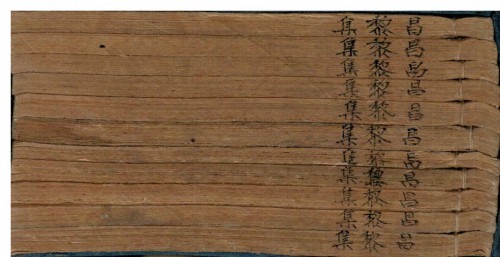 昌黎集
昌黎集
昌黎集
昌黎集
昌黎集
昌黎集
昌黎集
昌黎集
昌黎集
昌黎集
昌黎集